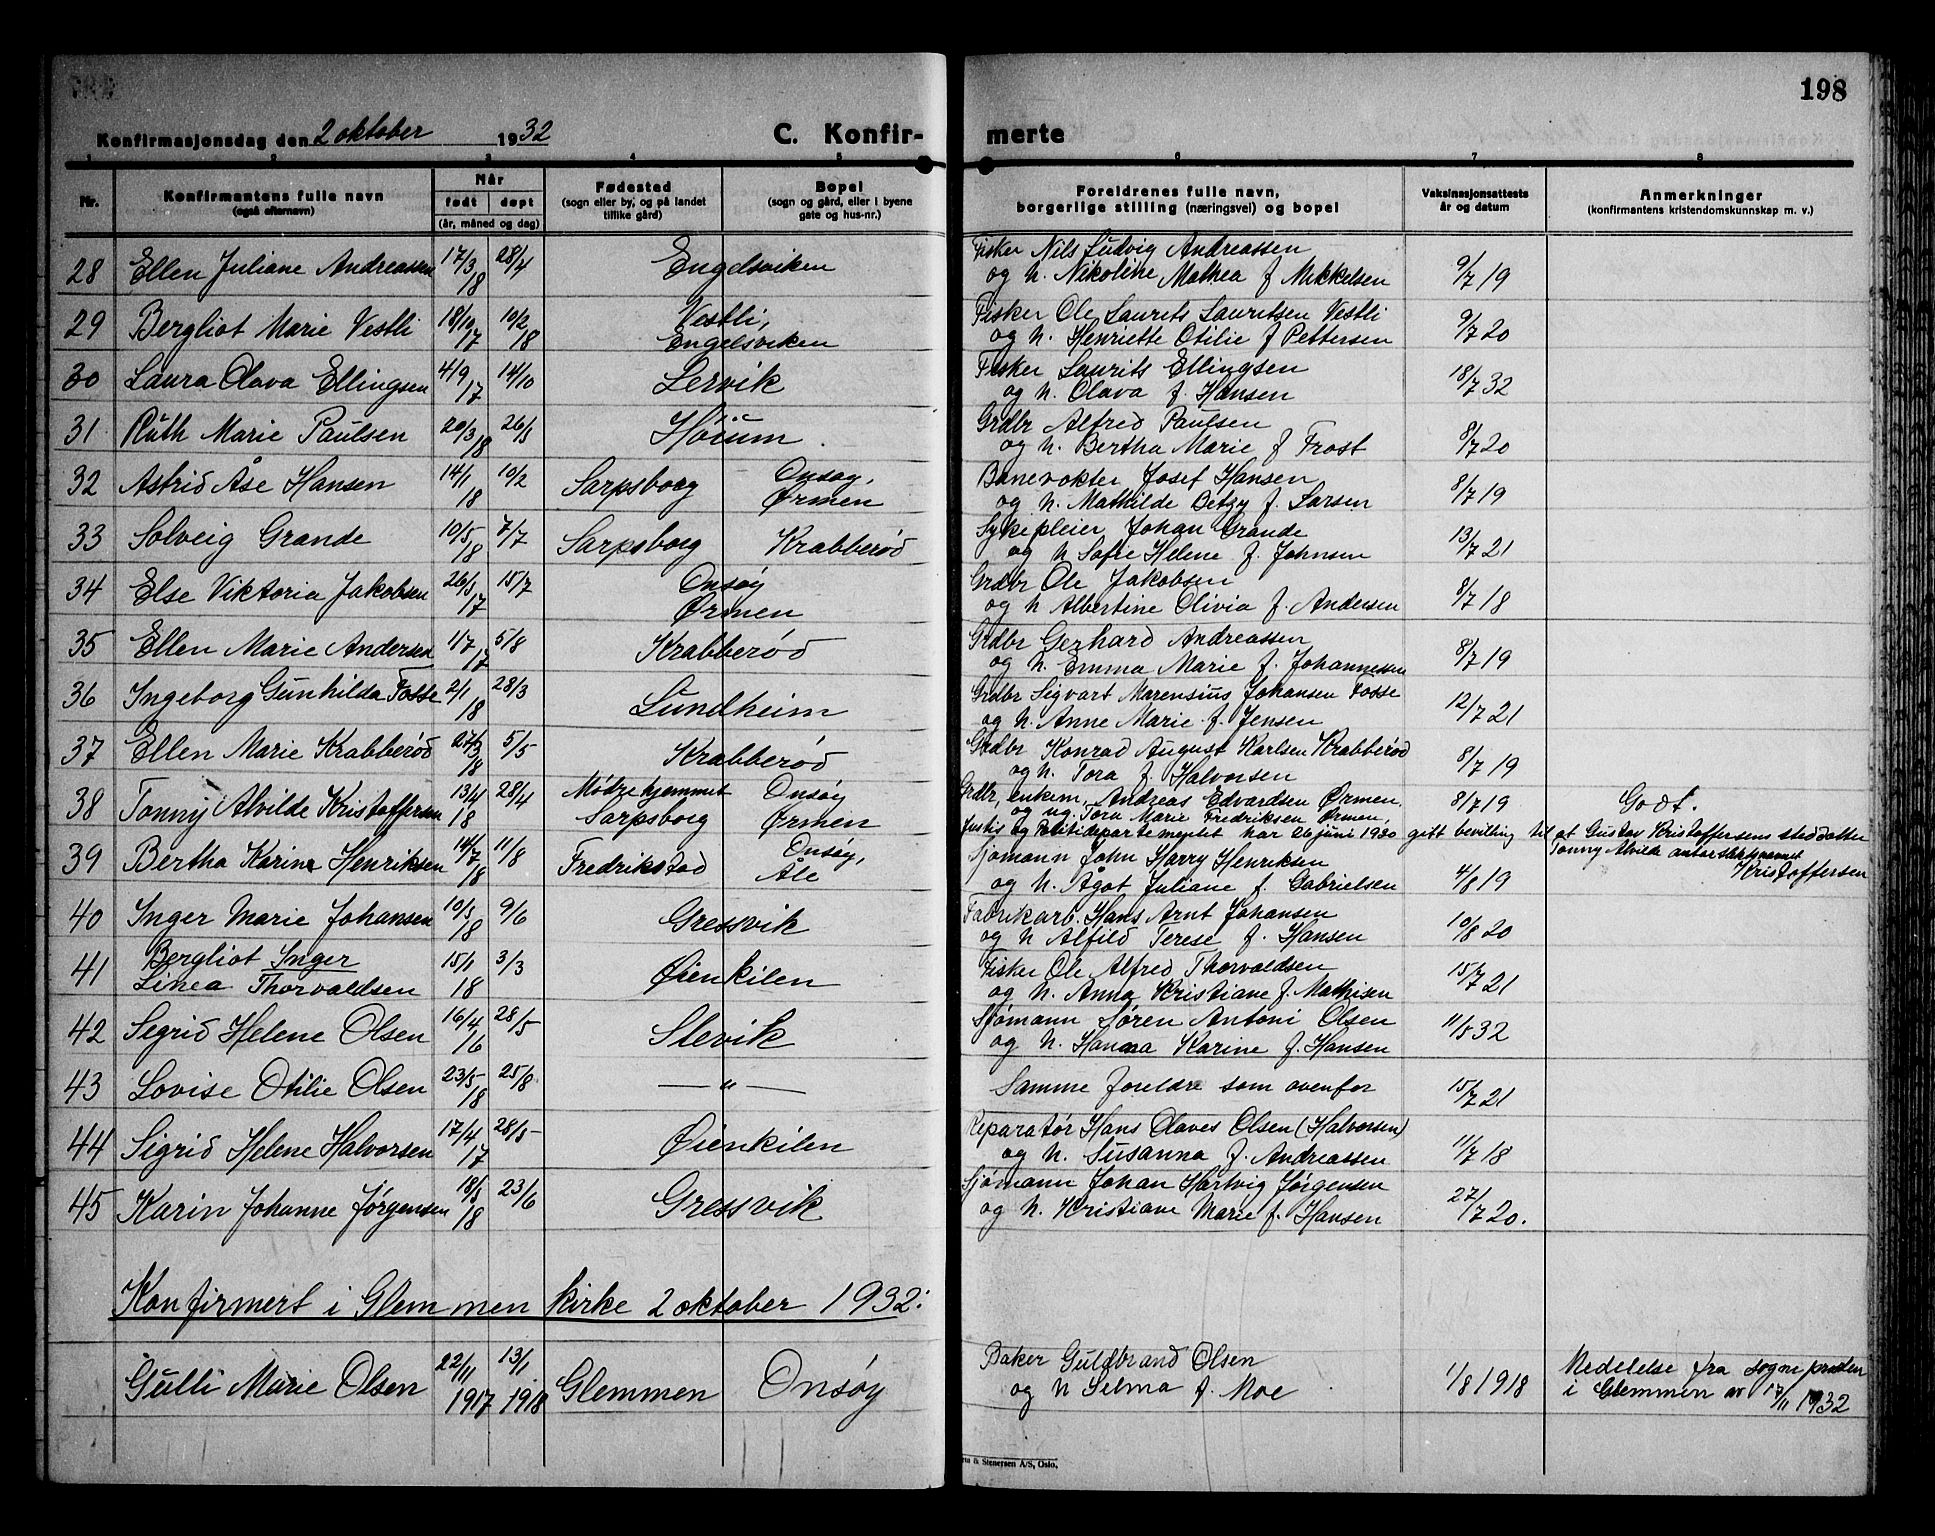 198
Konfirmasjonsdag den 2 oktober 1932
C. Konfirmerte
1 2 3 4 5 6 7 8
Nr.
Konfirmantens fulle navn
(også efternavn)
Når
født døpt
(år, måned og dag)
Fødested
(sogn eller by, og på landet
tillike gård)
Bopel
(sogn og gård, eller i byene
gate og hus-nr.)
Foreldrenes fulle navn,
borgerlige stilling (næringsvei) og bopel
Vaksinasjonsattests
år og datum
Anmerkninger
(konfirmantens kristendomskunnskap m. v.)
28 Ellen Juliane Andreassen 17/3 18 28/4 Engelsviken
Fisker Nils Ludvig Andreassen
og h. Nikoline Mathea f Mikkelsen 9/7 19
29 Bergliot Marie Vestli 18/10 17 10/2 18 Vestli,
Engelsviken
Fisker Ole Laurits Lauritsen Vestli
og h. Henriette Otilie f Pettersen 9/7 20
30 Laura Olava Ellingsen 4/9 17 14/10 Lervik
Fisker Laurits Ellingsen
og h. Olava f. Hansen 18/7 32
31 Ruth Marie Paulsen 20/3 18 26/5 Høium
Grdbr Alfred Paulsen
og h. Bertha Marie f Frost 8/7 20
32 Astrid Åse Hansen 14/1 18 10/2 Sarpsborg Onsøy,
Ørmen
Banevokter Josef Hansen
og h. Mathilde Betzy f. Larsen 8/7 19
33 Solveig Grande 10/5 18 7/7 Sarpsborg Krabberød
Sykepleier Johan Grande
og h Sofie Helene f. Johnsen 13/7 21
34 Else Viktoria Jakobsen 26/5 17 15/7 Onsøy
Ørmen
Grdbr Ole Jakobsen
og h Albertine Olivia f. Andersen 8/7 18
35 Ellen Marie Andersen 1/7 17 5/8 Krabberød
Grdbr Gerhard Andreassen
og h. Emma Marie f. Johannessen 8/7 19
36 Ingeborg Gunhilda Fosse 2/1 18 28/3 Lundheim
Grdbr Sigvart Marensius Johansen Fosse
og h. Anne Marie f. Jensen 12/7 21
37 Ellen Marie Krabberød 18 5/5 Krabberød
Grdbr Konrad August Karlsen Krabberød
og h. Tora f. Halvorsen 8/7 19
38 Tonny Alvilde Kristoffersen 13/4 18 28/4 Mødrehjemmet
Sarpsborg Onsøy
Ørmen
Grdbr, enkem, Andreas Edvardsen Ørmen,
og ug. Tora Marie Fredriksen Ørmen, 8/7 19 Godt.
Justis og Politidepartementet har 26 juni 1920 gitt bevilling til at Gustav Kristoffersens steddatter
Tonny Alvilde antar slektsnavnet
Kristoffersen
39 Bertha Karine Henriksen 14/7 18 11/8 Fredrikstad Onsøy,
Åle
Sjømann John Harry Henriksen
og h. Ågot Juliane f. Gabrielsen 4/8 19
40 Inger Marie Johansen 10/5 18 9/6 Gressvik
Fabrikarb. Hans Arnt Johansen
og h Alfild Terese f. Hansen 10/8 20
41 Bergliot Inger
Linea Thorvaldsen 15/1 18 3/3 Øienkilen
Fisker Ole Alfred Thorvaldsen
og h. Anna Kristiane f. Mathisen 15/7 21
42 Sigrid Helene Olsen 16/4 16 28/5 Slevik
Sjømann Søren Antoni Olsen
og h. Hanna Karine f. Hansen 11/5 32
43 Lovise Otilie Olsen 23/5 18 25/8 — " —
Samme foreldre som ovenfor 15/7 21
44 Sigrid Helene Halvorsen 17/4 17 28/5 Øienkilen
Reparatør Hans Olaves Olsen (Halvorsen)
og h. Susanna f. Andreassen 11/7 18
45 Karin Johanne Jørgensen 18/5 18 23/6 Gressvik
Sjømann Johan Hartvig Jørgensen
og h. Kristiane Marie f. Hansen 27/7 20.
Konfirmert i Glemmen kirke 2 oktober 1932:
Gulli Marie Olsen 22/11 1917 13/1 1918 Glemmen Onsøy
Baker Guldbrand Olsen
og h Selma f. Moe 1/8 1918
Meddelelse fra sognepresten
i Glemmen av 17/11 1932
& Stenersen A/S, Oslo.